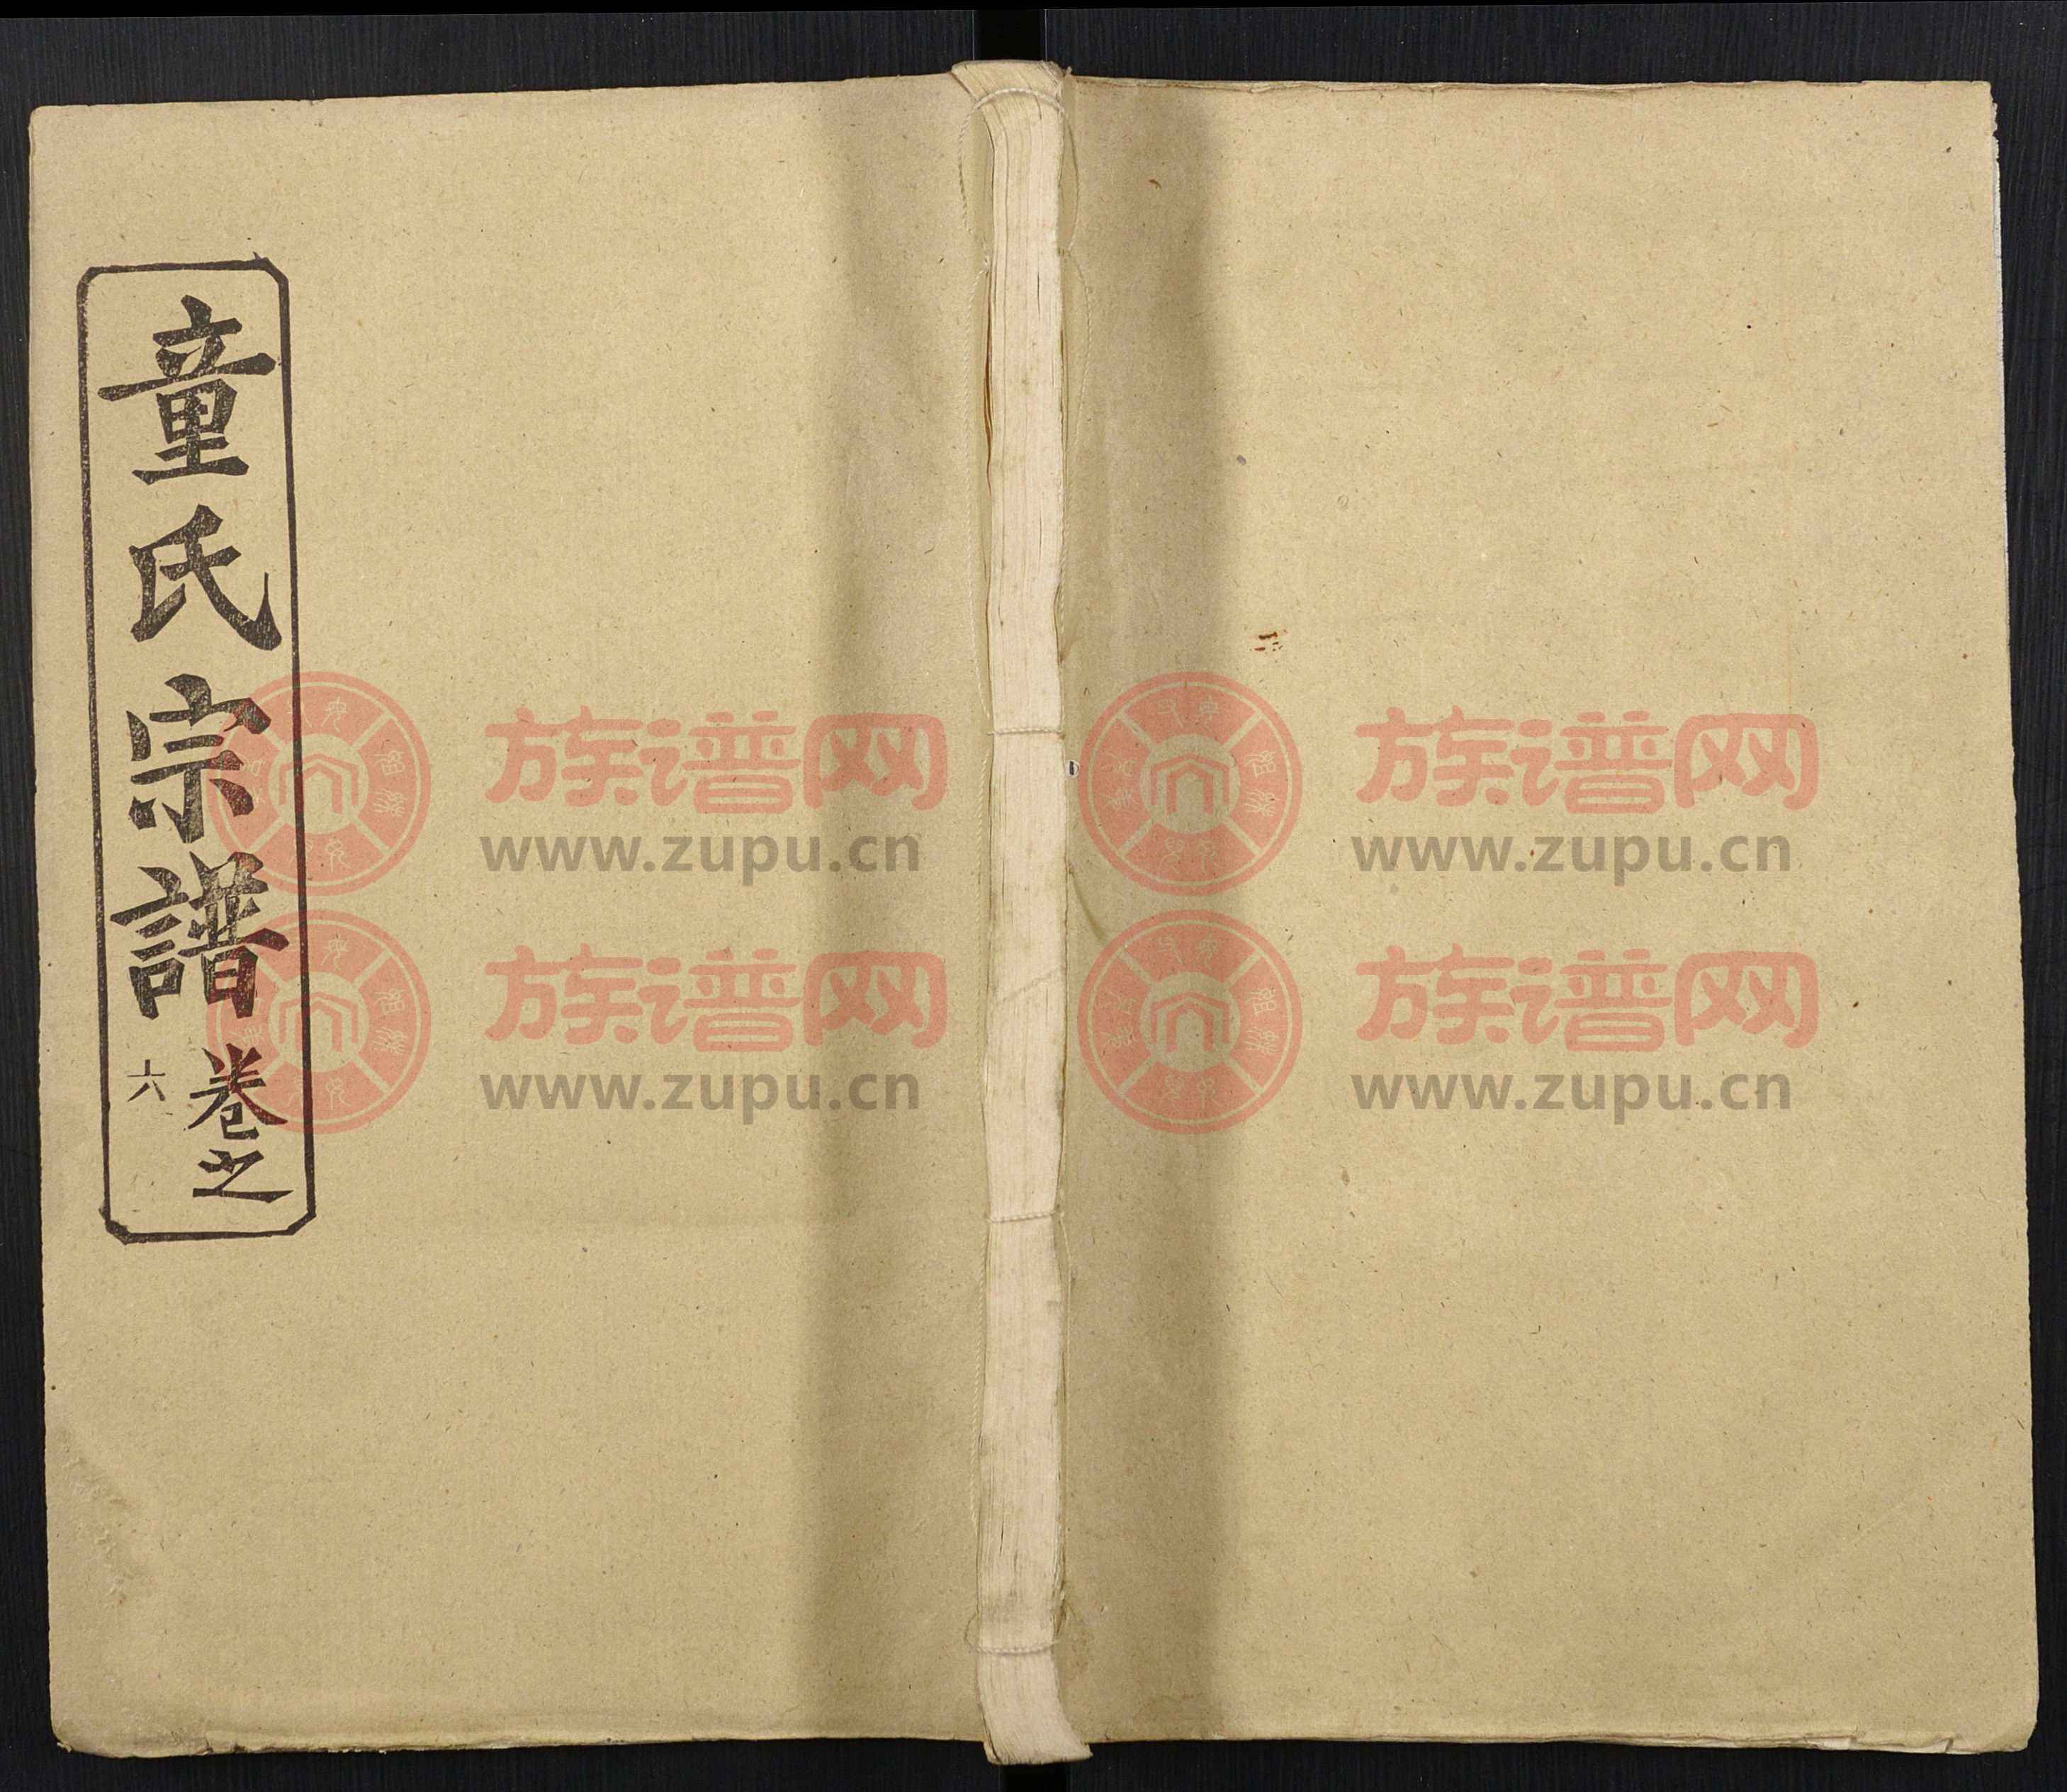 童氏宗譜
卷之
六
族谱网
www.zupu.cn
族谱网
www.zupu.cn
族谱网
www.zupu.cn
族谱网
www.zupu.cn